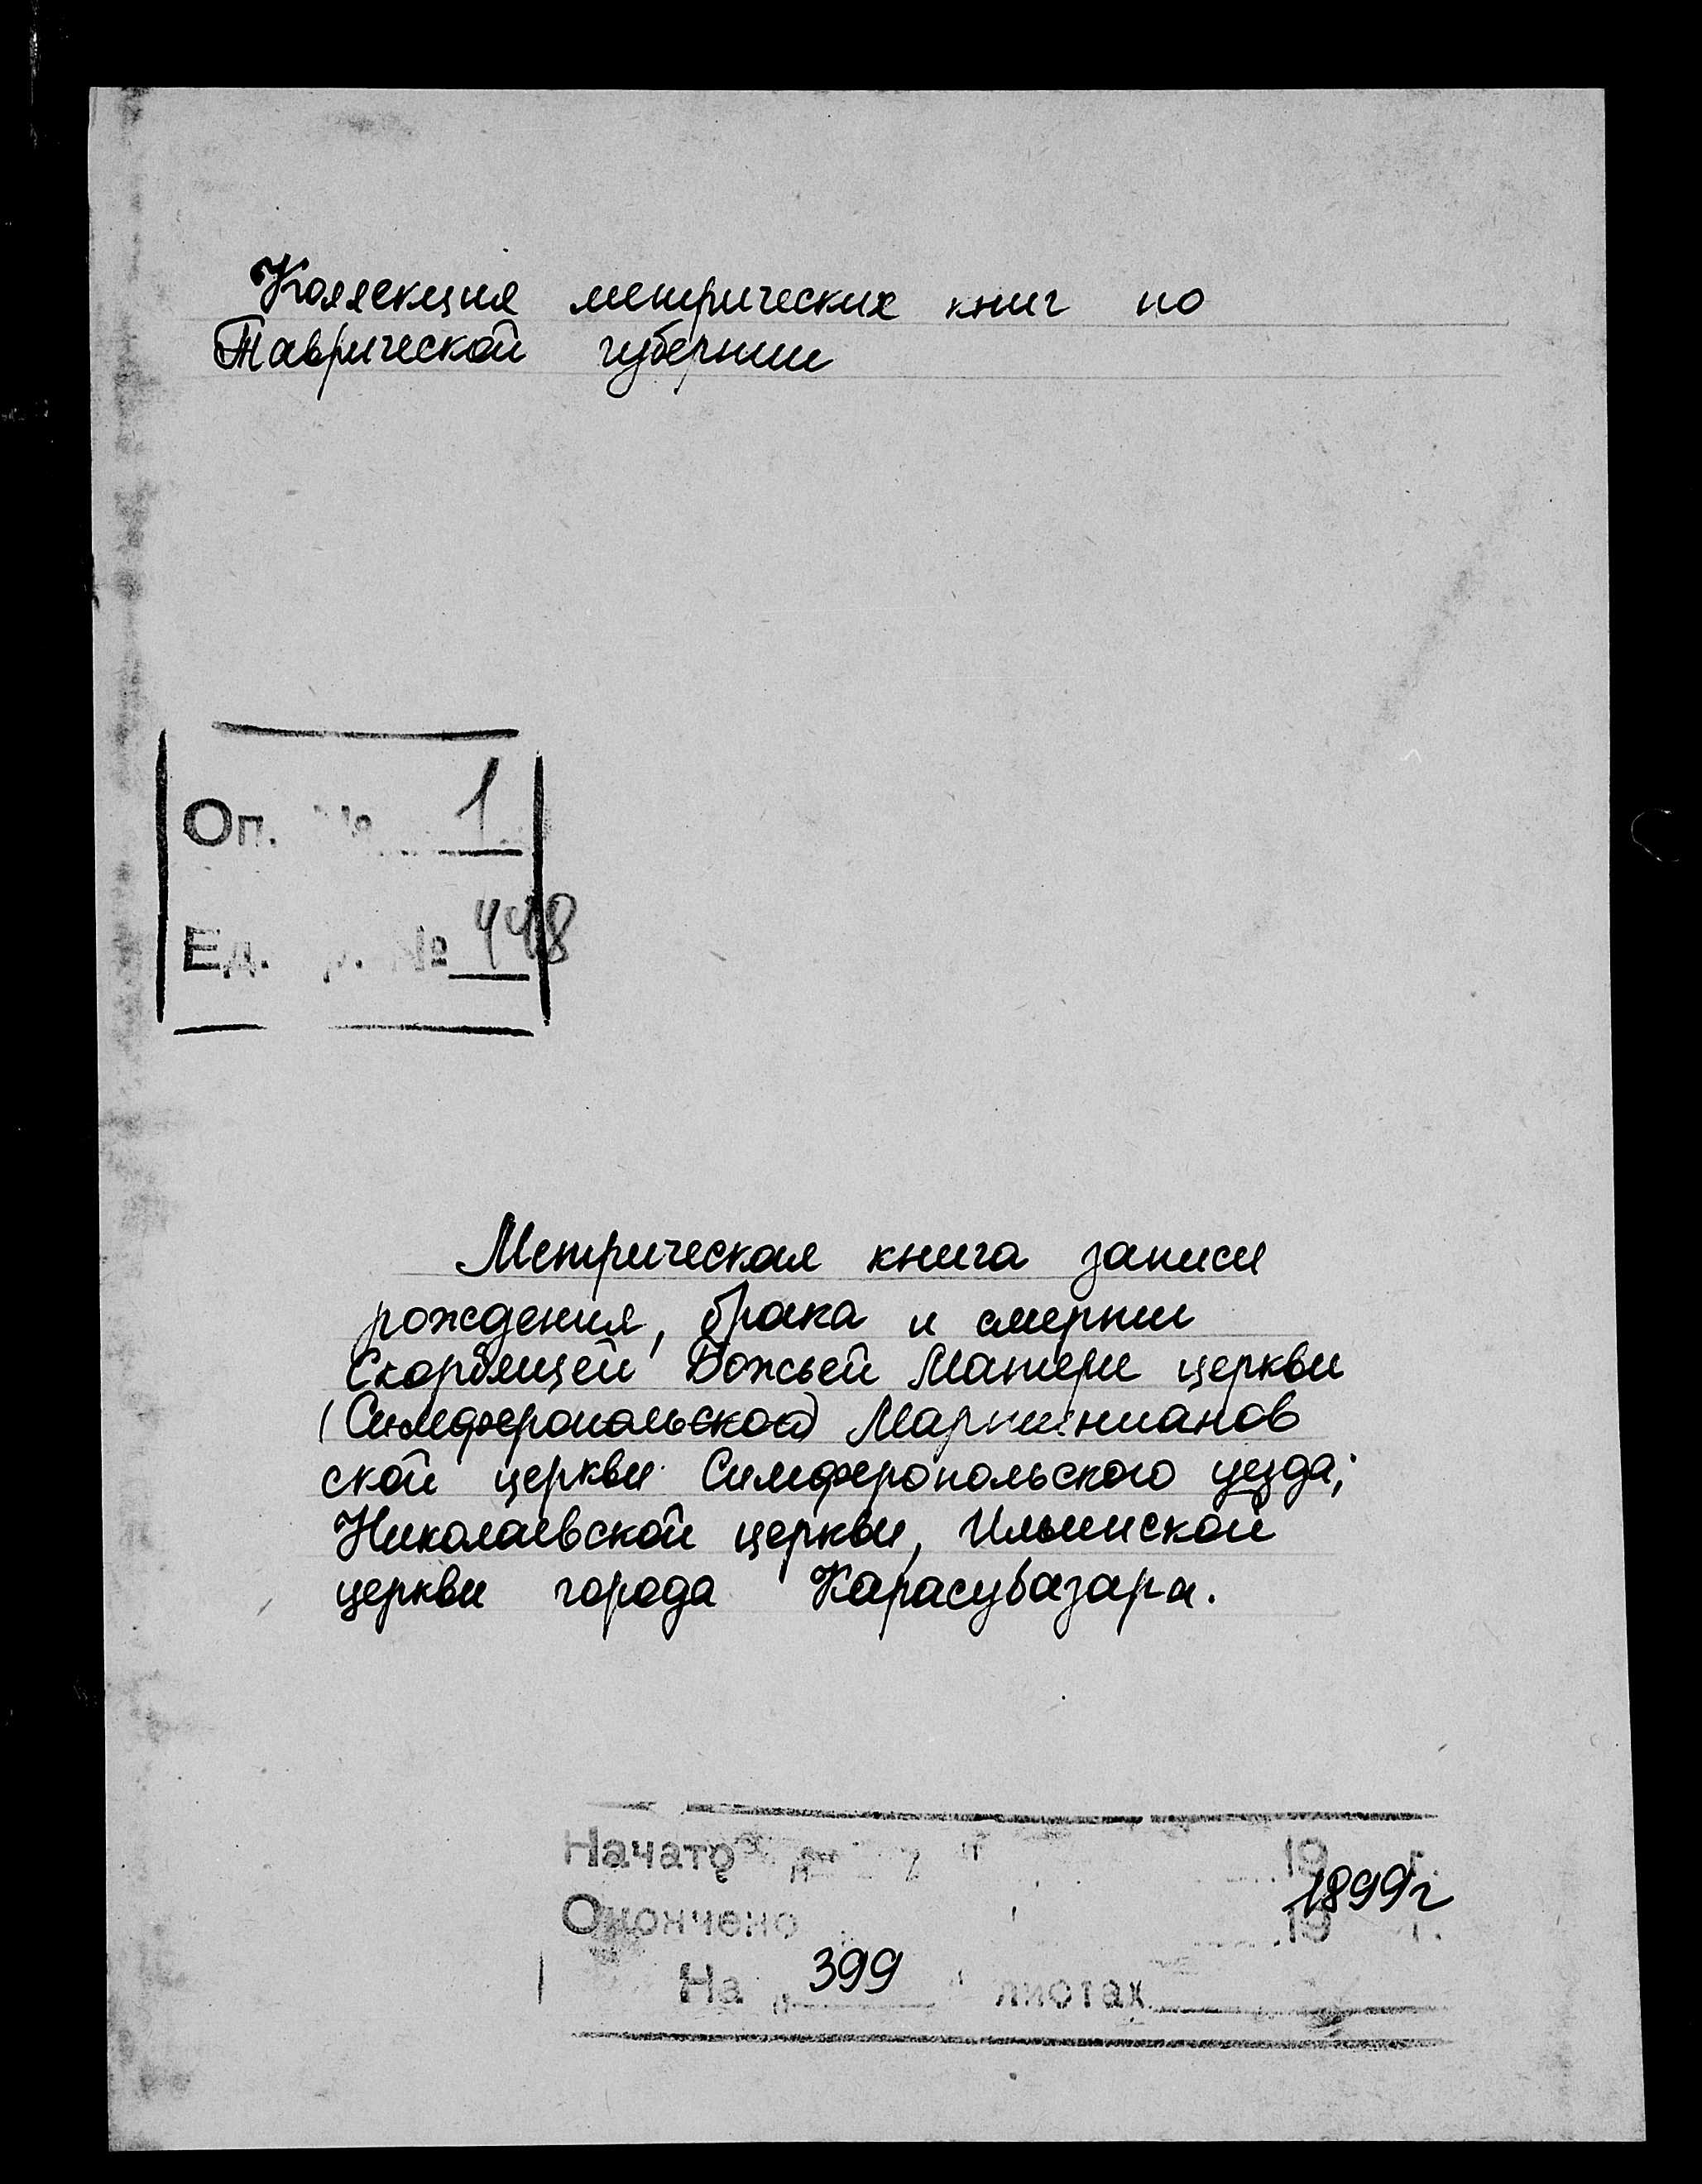 Коллекция метрических книг по
Таврической губернии
Оп. № 1
Ед. р. № 448
Метрическая книга записи
рождения, брака и смерти
Скорбящей Божьей Матери церкви
(Симферопольской)
ской церкви Симферопольского уезда;
Николаевской церкви, Ильинской
церкви города Карасубазара.
Начато 19 г.
1899г
Окончено 19 г.
На 399 листах